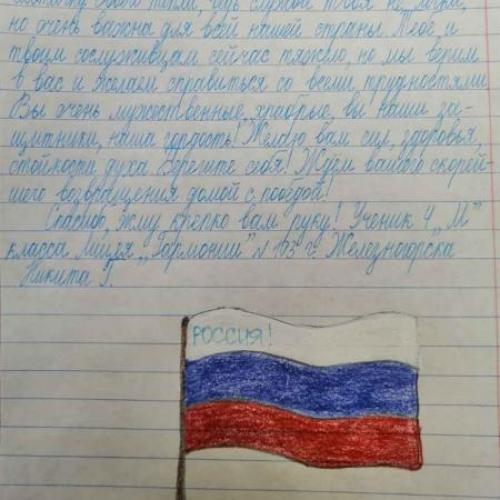 своего папы, ведь служба твоя не легка,
но очень важна для всей нашей страны. Тебе и
твоим сослуживцам сейчас тяжело, но мы верим
в вас и желаем справиться со всеми трудностями.
Вы очень мужественные, храбрые, вы наши за-
щитники, наша гордость! Желаю вам сил, здоровья,
стойкости духа. Берегите себя! Ждем вашего скорей-
шего возвращения домой с победой!
Спасибо, жму крепко вам руку! Ученик 4 „М"
класса Лицея „Гармония" № 103 г. Железногорска
Никита Г.
РОССИЯ!